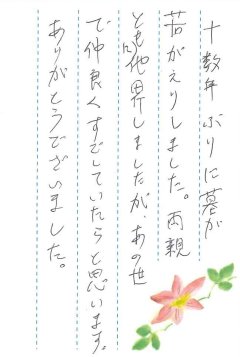 十数年ぶりに墓が
若がえりしました。両親
とも他界しましたが、あの世
で仲良くすごしていたらと思います。
ありがとうございました。